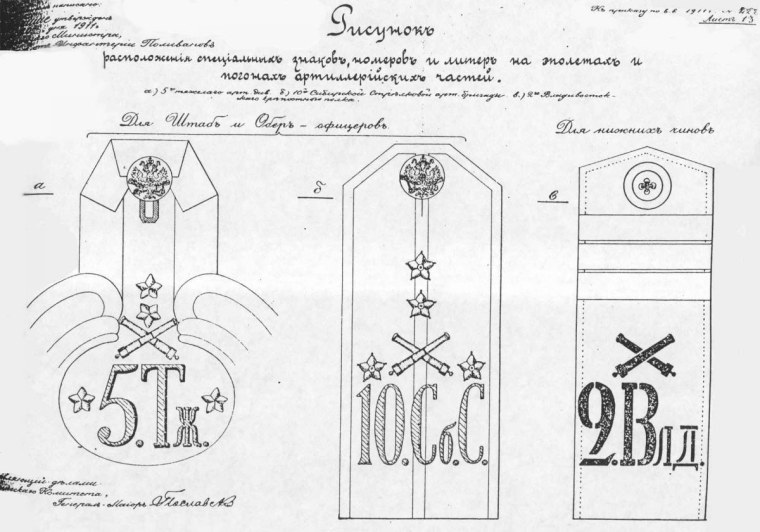 утвержденъ
дня 1911 г.
Министра,
Инфантеріи Поливановъ
Къ приказу по в.в. 1911 г. №
Листъ 13
Рисунокъ
расположенія спеціальныхъ знаковъ, номеровъ и литеръ на эполетахъ и
погонахъ артиллерійскихъ частей.
а) 5го тяжелаго арт. див. б) 10й Сибирской Стрѣлковой арт. бригады в) 2го Владивосток-
скаго крѣпостного полка.
Для Штабъ и Оберъ-офицеровъ
Для нижнихъ чиновъ
а
б
в
5.Тж.
10.Сб.С.
2.Влд.
дѣлами
Комитета,
Генералъ-Маіоръ